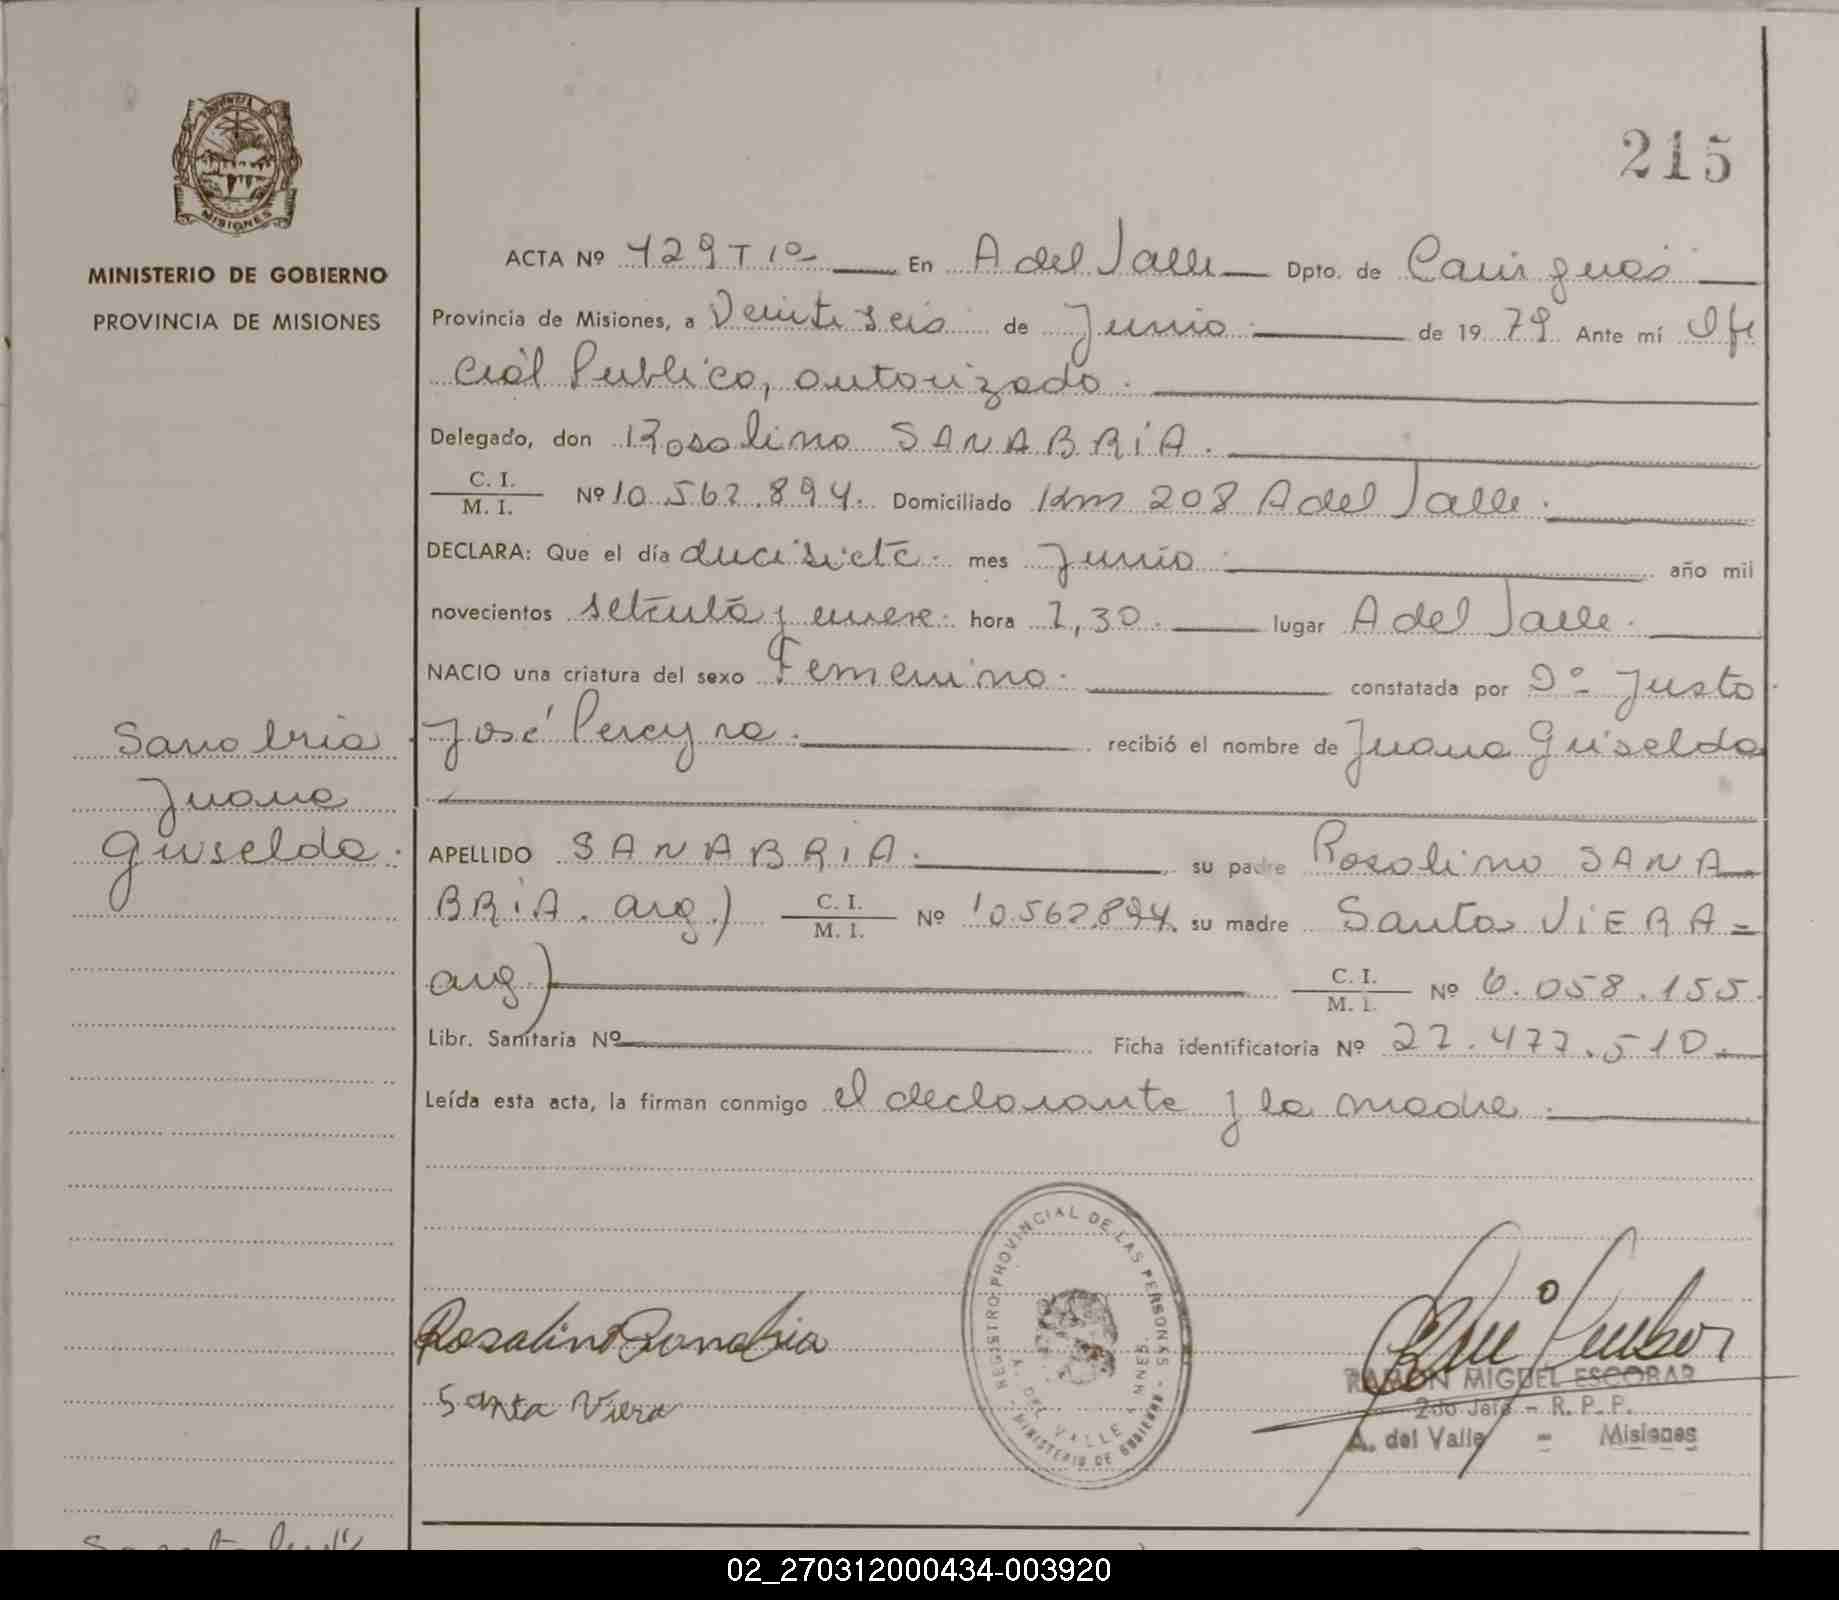 215
MISIONES
MINISTERIO DE GOBIERNO
PROVINCIA DE MISIONES
ACTA Nº 429 T 1º En A del Valle Dpto. de Cainguás
Provincia de Misiones, a Veintiseis de Junio de 1979 Ante mí Ofi
cial Publico, autorizado.
Delegado, don Rosalino SANABRIA.
C. I.
M. I. Nº 10.562.894. Domiciliado Km 208 A del Valle.
DECLARA: Que el día diecisiete mes Junio año mil
novecientos setenta y nueve hora 7,30. lugar A del Valle.
NACIO una criatura del sexo Femenino. constatada por Dº Justo
José Pereyra. recibió el nombre de Juana Griselda
Sanabria
Juana
Griselda.
APELLIDO SANABRIA. su padre Rosalino SANA
BRIA. arg.) C. I.
M. I. Nº 10.562.894. su madre Santa VIERA=
arg.) C. I.
M. I. Nº 6.058.155.
Libr. Sanitaria Nº Ficha identificatoria Nº 27.477.510.
Leída esta acta, la firman conmigo el declarante y la madre.
Rosalino Sanabria
Santa Viera
REGISTRO PROVINCIAL DE LAS PERSONAS
A. DEL VALLE MNES.
MINISTERIO DE GOBIERNO
RAMON MIGUEL ESCOBAR
2do Jefe - R. P. P.
A. del Valle - Misiones
02_270312000434-003920